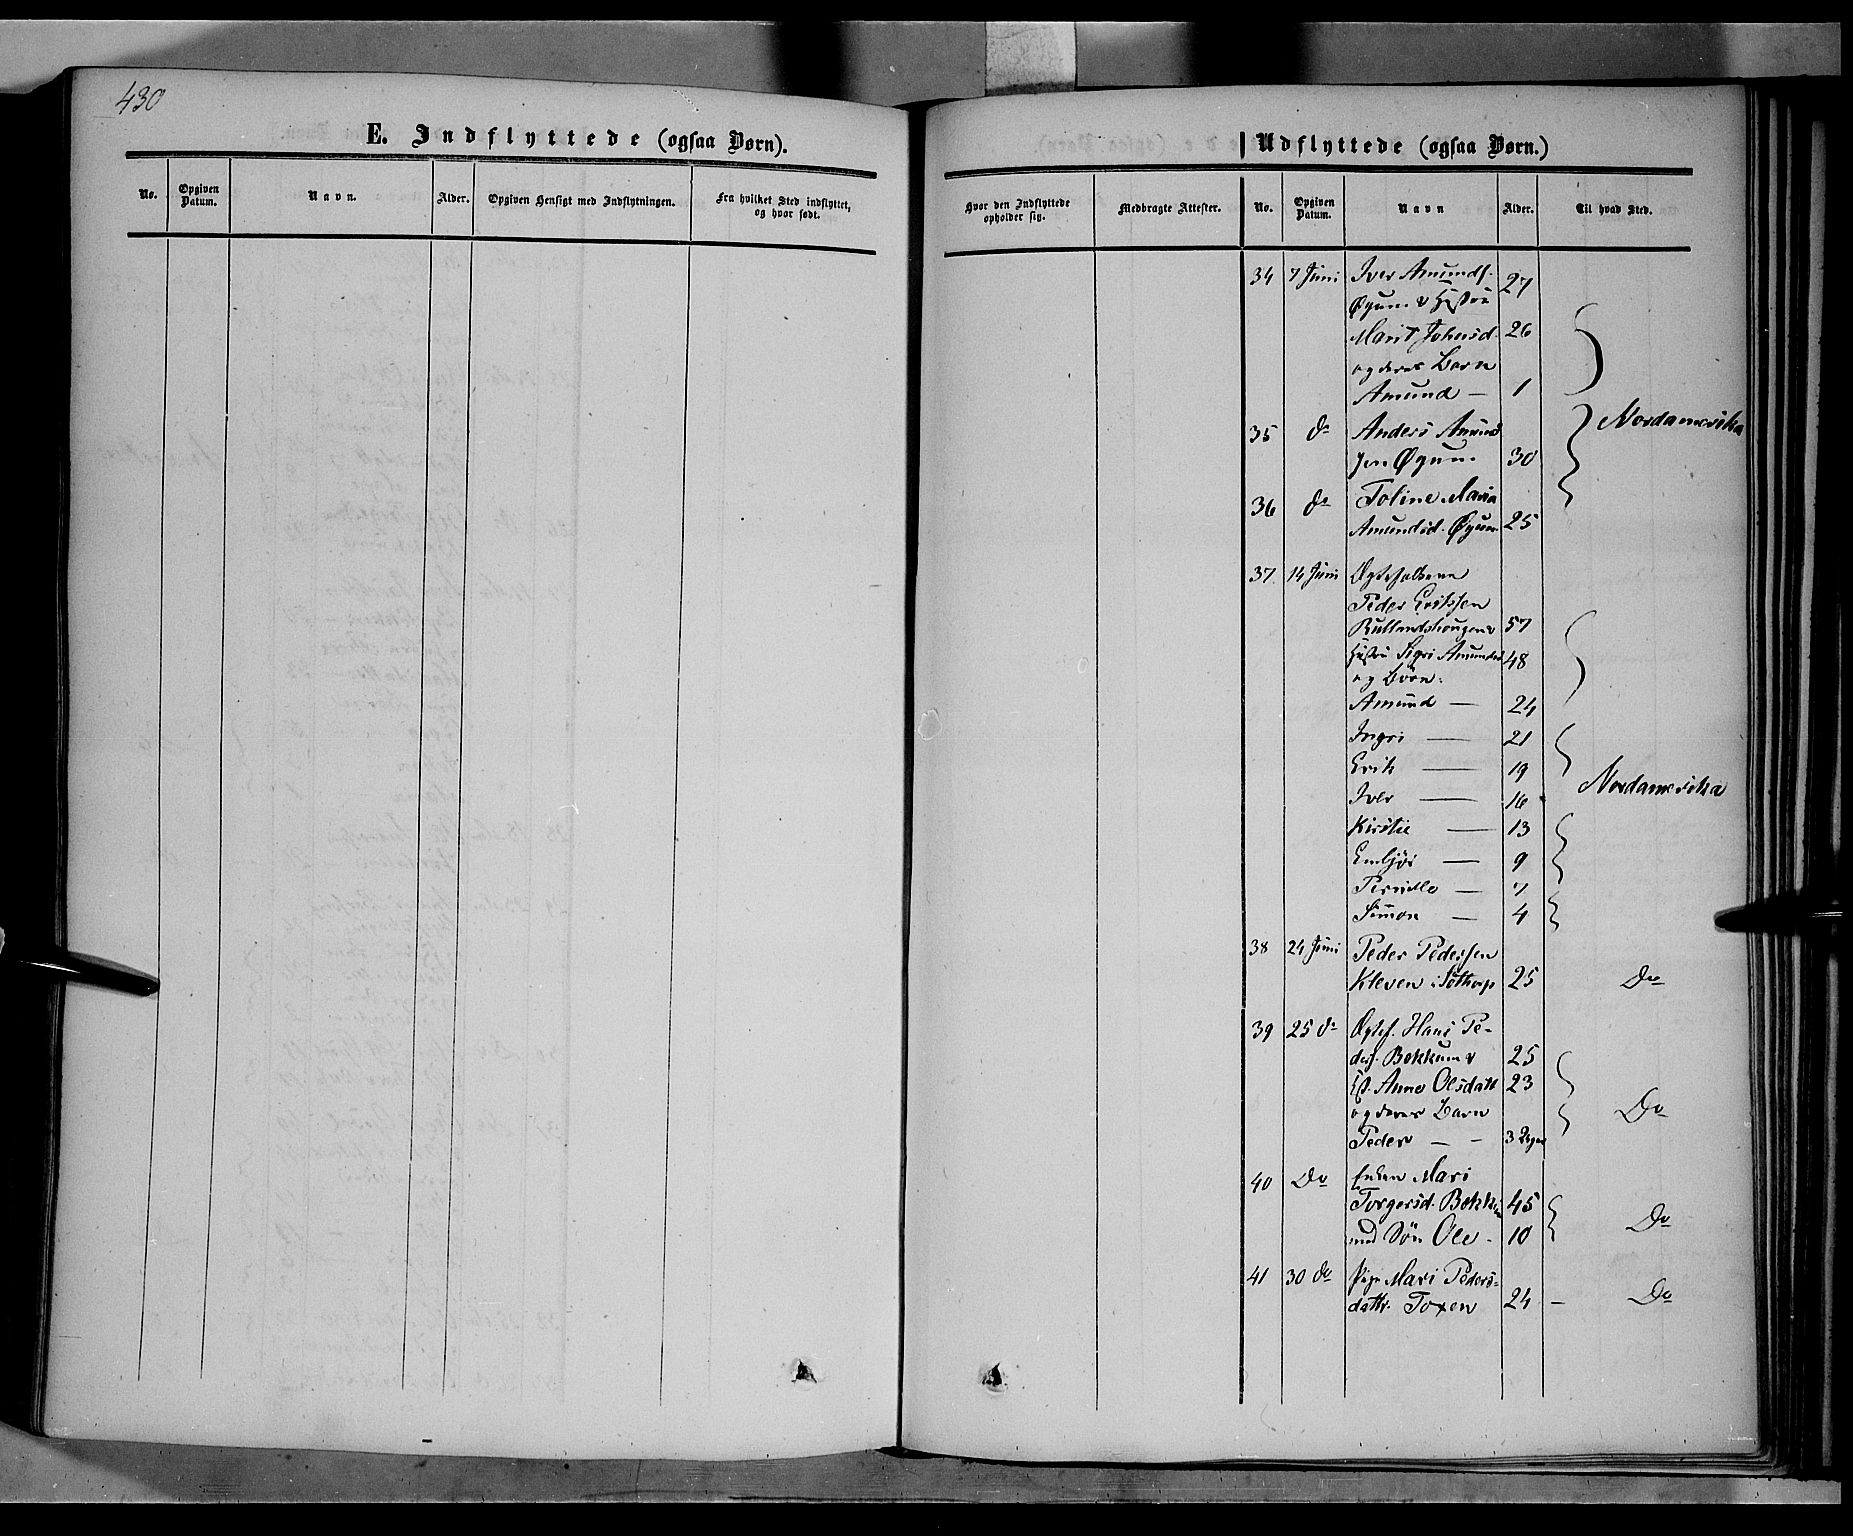 430
E. Indflyttede (ogsaa Børn).
No. Opgiven Datum. Navn. Alder. Opgiven Hensigt med Indflytningen. Fra hvilket Sted indflyttet, og hvor født.
Udflyttede (ogsaa Børn.)
Hvor den Indflyttede opholder sig. Medbragte Attester. No. Opgiven Datum. Navn Alder. Til hvad Sted.
34 7 Juni Iver Amunds. 27
Øyum & Hustru
Marit Johnsd. 26
og deres Barn
Amund — 1
Nordamerika
35 do Anders Amund
sen Øyum 30
36 do Toline Maria
Amundsd. Øyum 25
37 14 Juni Egtefolkene
Peder Eriksen
Rullandshougen & 57
Hustru Sigri Amundsd 48
og Børn.
Amund — 24
Ingri — 21
Erik — 19
Nordamerika
Iver — 16
Kirstie — 13
Embjør — 9
Pernille — 7
Simon — 4
38 24 Juni Peder Pedersen
Kleven i Sothorp 25 Do
39 25 do Egtef. Hans Pe-
ders. Bekkum & 25
H. Anne Olsdatt 23
og deres Barn Do
Peder — — 3 Uger
40 Do Enken Mari
Torgersd. Bekkum 45
med Søn Ole - 10 Do
41 30 do Pige Mari Peders-
dattr. Toxen 24 — Do